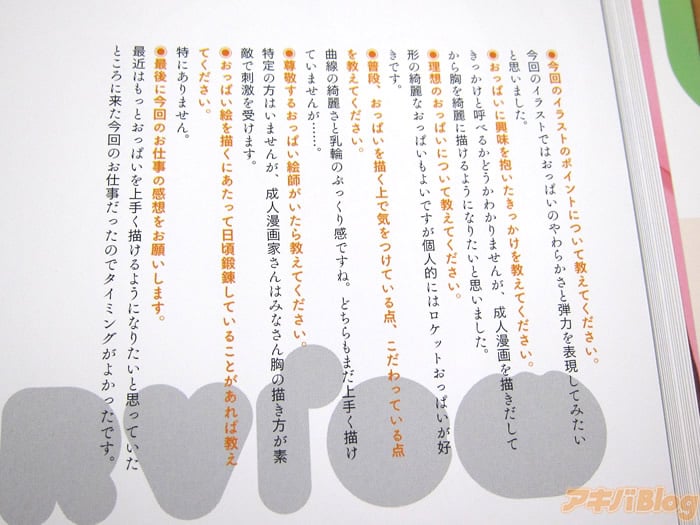 ●今回のイラストのポイントについて教えてください。
今回のイラストではおっぱいのやわらかさと弾力を表現してみたい
と思いました。
●おっぱいに興味を抱いたきっかけを教えてください。
きっかけと呼べるかどうかわかりませんが、成人漫画を描きだして
から胸を綺麗に描けるようになりたいと思いました。
●理想のおっぱいについて教えてください。
形の綺麗なおっぱいもよいですが個人的にはロケットおっぱいが好
きです。
●普段、おっぱいを描く上で気をつけている点、こだわっている点
を教えてください。
曲線の綺麗さと乳輪のぷっくり感ですね。どちらもまだ上手く描け
ていませんが……。
●尊敬するおっぱい絵師がいたら教えてください。
特定の方はいませんが、成人漫画家さんはみなさん胸の描き方が素
敵で刺激を受けます。
●おっぱい絵を描くにあたって日頃鍛錬していることがあれば教え
てください。
特にありません。
●最後に今回のお仕事の感想をお願いします。
最近はもっとおっぱいを上手く描けるようになりたいと思っていた
ところに来た今回のお仕事だったのでタイミングがよかったです。
アキバBlog